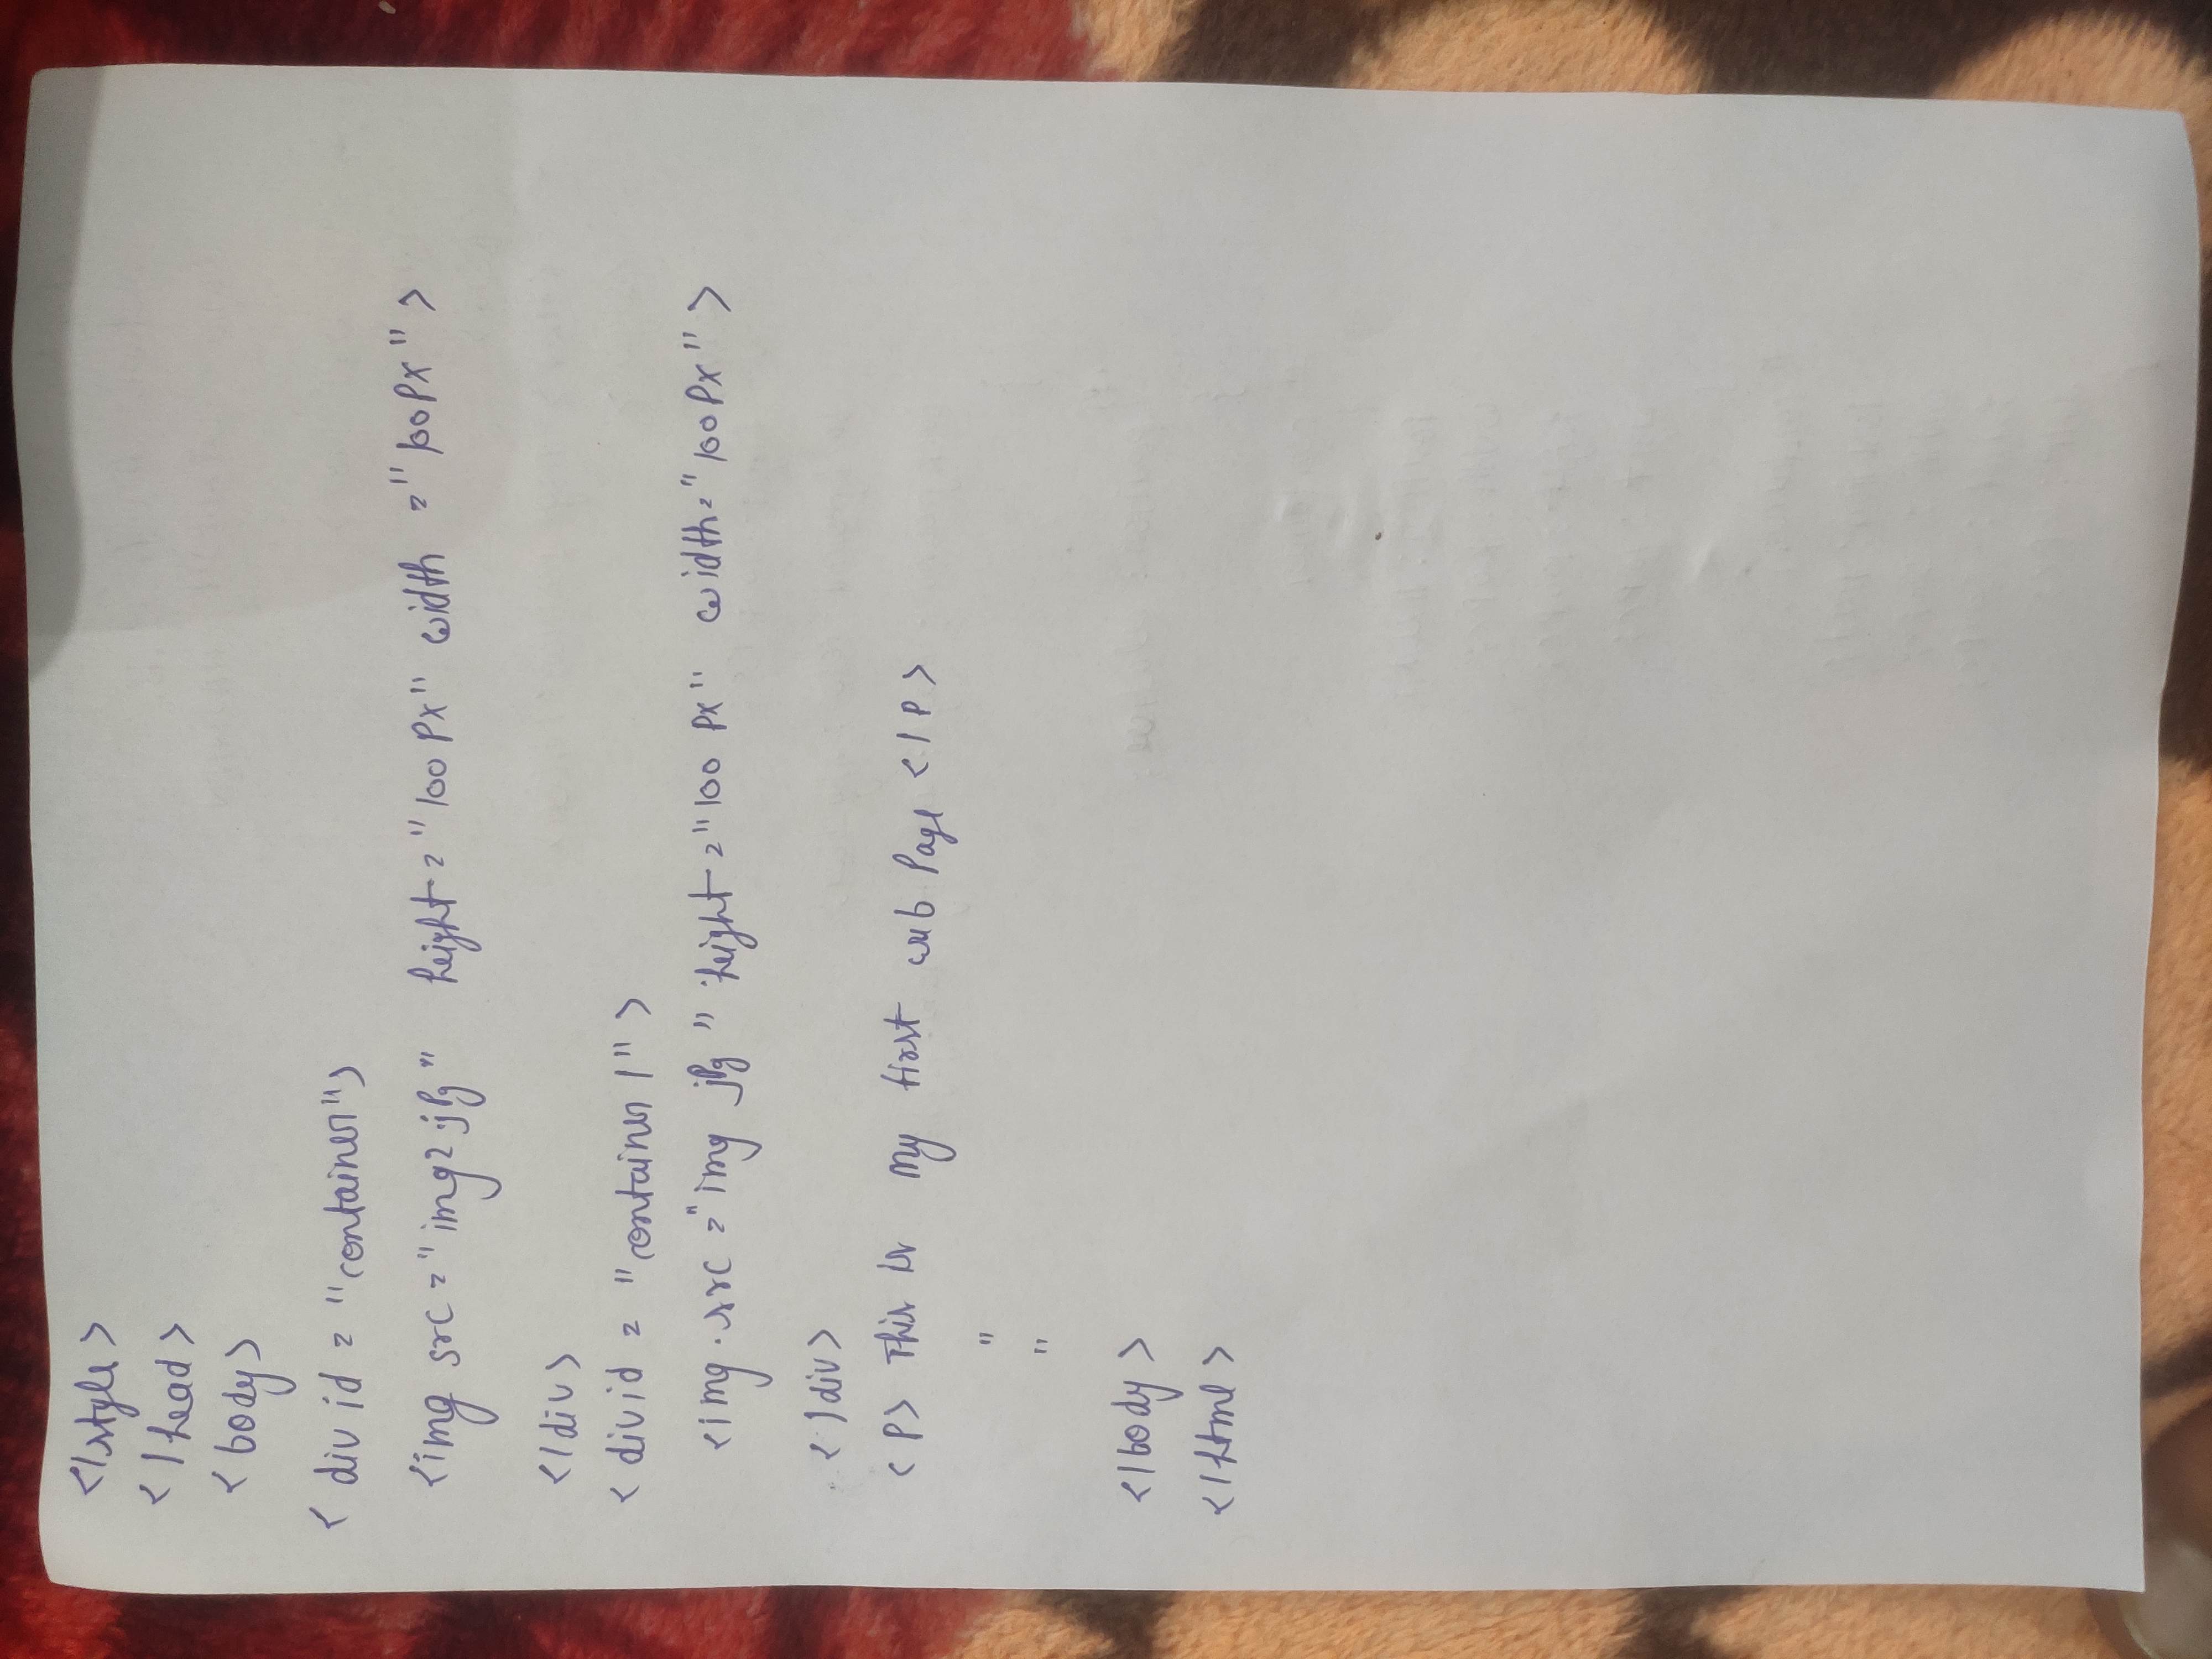 </style>
</head>
<body>
<div id = "container">
<img src = "img2.jpg" height = "100 px" width = "100px">
</div>
<div id = "container 1">
<img src = "img jpg" height = "100 px" width = "100px">
</div>
<p> This is my first web page </p>
"
"
</body>
</html>